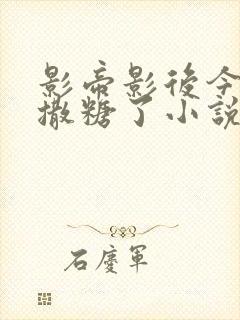 影帝影後今
撒糖了小說
石慶軍